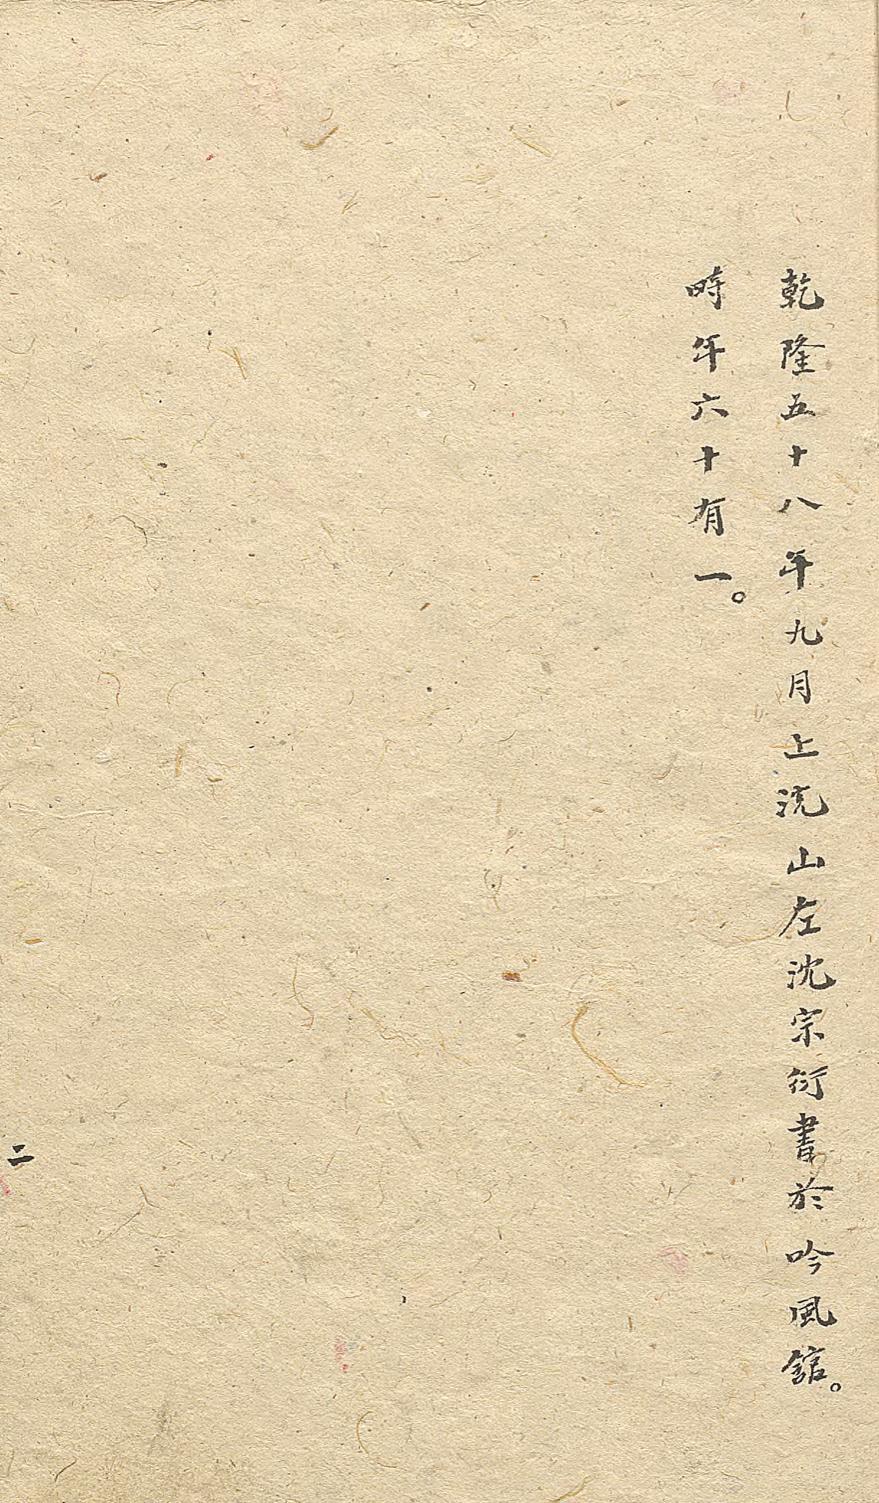 乾隆五十八年九月上浣山左沈宗衍書於吟風舘。
時年六十有一。
二